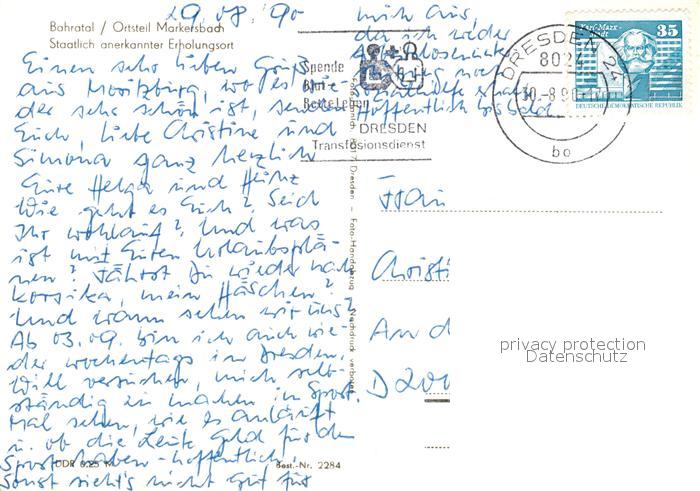 29.08.90
Bahratal / Ortsteil Markersbach
Staatlich anerkannter Erholungsort
Einen sehr lieben Gruß
aus Moritzburg, wo es wie-
der sehr schön ist, senden
Euch, liebe Christine und
Simona ganz herzlich
Eure Helga und Heinz
Wie geht es Euch? Seid
Ihr wohlauf? Und was
ist mit Euren Urlaubsplä-
nen? Fährst Du wieder nach
Korsika, mein Häschen?
Und wann sehen wir uns?
Ab 03.09. bin ich auch wie-
der wochentags in Dresden,
Will versuchen, mich selb-
ständig zu machen im Sport.
Mal sehen, wie es anläuft
u. ob die Leute Geld für den
Sport haben - hoffentlich,
sonst sieht's nicht gut für
mich aus,
da ich wieder
hoffentlich
DDR 0.25 M
Best.-Nr. 2284
Spende
Blut
Rette Leben
DRESDEN
Transfusionsdienst
DRESDEN 24
8024
30-8.90
bo
Karl-Marx-
Stadt
35
DEUTSCHE DEMOKRATISCHE REPUBLIK
Dresden - Foto-Handabzug - Nachdruck verboten
Frau
Christi
An d
D 200
privacy protection
Datenschutz